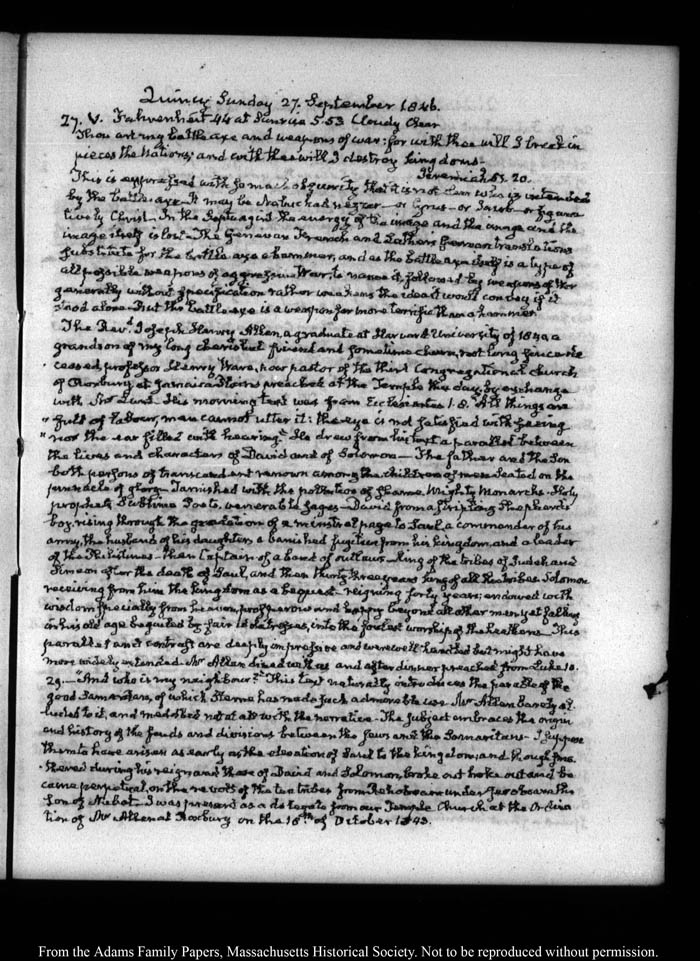 Quincy Sunday 27. September 1846.
27. V. Fahrenheit 44 at Sunrise 5.53 Cloudy Clear
Thou art my battle axe and weapons of war: for with thee will I break in
pieces the Nations, and with thee will I destroy kingdoms—
Jeremiah 51. 20.
This is expressed with so much obscurity that it is not clear who is intended
by the battle-axe. It may be Nebuchadnezzar—or Cyrus—or Jacob—or figura
tively Christ. In the Septuagint the energy of the image and the image and the
image itself is lost—The Genevan French and Luthers German translations
substitute for the battle axe a hammer, and as the battle axe itself is a type of
all possible weapons of aggressive War, to name it, followed by weapons of War
generally without specification rather weakens the idea it would convey if it
stood alone. But the battle-axe is a weapon far more terrific than a hammer.
The Revd. Joseph Henry Allen, a graduate at Harvard University of 1840, a
grandson of my long cherished friend and sometime chum, not long since de
ceased, professor Henry Ware, now pastor of the third Congregational church
of Roxbury at Jamaica Plains preached at the Temple this day, by exchange
with Mr Lunt. His morning text was from Ecclesiastes 1.8. "All things are
" full of labour, man cannot utter it: the eye is not satisfied with seeing
" nor the ear filled with hearing." He drew from his text a parallel between
the lives and characters of David and of Solomon—The father and the Son
both persons of transcendent renown among the children of men. Seated on the
pinnacle of glory—Tarnished with the pollution of shame. Mighty Monarchs. Holy
prophets, Sublime Poets, venerable Sages—David from a stripling Shepherd's
boy, rising through the gradation of a minstrel page to Saul, a commander of his
army, the husband of his daughter, a banished fugitive from his kingdom, and a leader
of the Philistines—then Captain of a band of outlaws—King of the tribes of Judah and
Simeon after the death of Saul, and then thirty three years king of all the tribes. Solomon
receiving from him the kingdom as a bequest—reigning forty years; endowed with
wisdom specially from heaven, prosperous and happy beyond all other men yet falling
in his old age beguiled by fair idolatresses, into the foulest worship of the heathens. This
parallel and contrast are deeply impressive and were well handled but might have
more widely extended. Mr Allen dined with us and after dinner preached from Luke 10.
29.—"And who is my neighbour?" This text naturally introduces the parable of the
good Samaritan, of which Sterne has made such admirable use. Mr Allen barely al
luded to it, and meddled not at all with the narrative—The subject embraces the origin
and history of the feuds and divisions between the Jews and the Samaritans—I suppose
them to have arisen as early as the elevation of Saul to the kingdom, and though smo
thered during his reign and those of David and Solomon, broke out broke out and be
came perpetual, on the revolt of the ten tribes from Rehoboam under Jeroboam the
Son of Nebat. I was present as a delegate from our Temple Church at the Ordina
tion of Mr Allen at Roxbury on the 18th of October 1843.
From the Adams Family Papers, Massachusetts Historical Society. Not to be reproduced without permission.